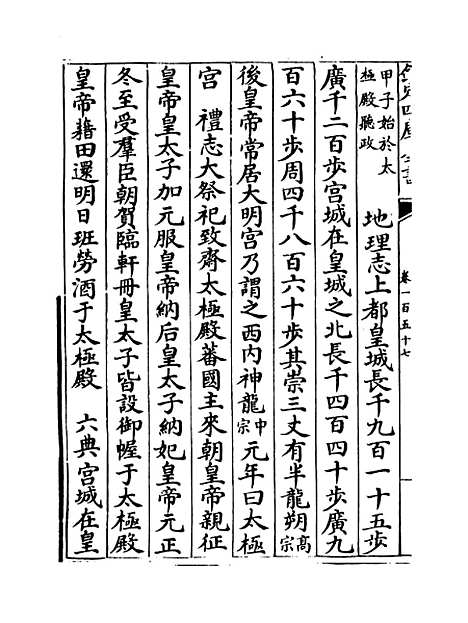 欽定四庫全書
卷一百五十七
甲子始於太
極殿聽政 地理志上都皇城長千九百一十五步
廣千二百步宮城在皇城之北長千四百四十步廣九
百六十步周四千八百六十步其崇三丈有半龍朔高宗
後皇帝常居大明宮乃謂之西內神龍中宗元年曰太極
宮 禮志大祭祀致齋太極殿蕃國主來朝皇帝親征
皇帝皇太子加元服皇帝納后皇太子納妃皇帝元正
冬至受羣臣朝賀臨軒冊皇太子皆設御幄于太極殿
皇帝藉田還明日班勞酒于太極殿 六典宮城在皇